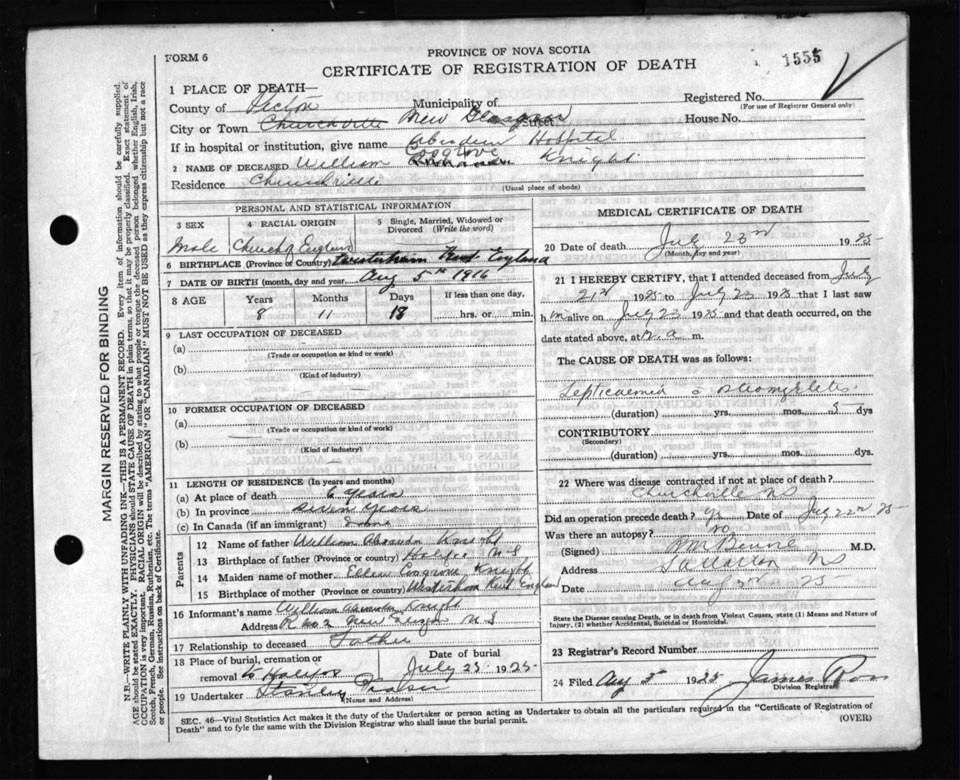 FORM 6
PROVINCE OF NOVA SCOTIA
CERTIFICATE OF REGISTRATION OF DEATH
1555
1 PLACE OF DEATH—
County of Pictou Municipality of
Registered No.
(For use of Registrar General only)
City or Town Churchville New Glasgow Street
House No.
If in hospital or institution, give name Aberdeen Hospital
2 NAME OF DECEASED William Cosgrove Knight
Residence Churchville
(Usual place of abode)
PERSONAL AND STATISTICAL INFORMATION
3 SEX
4 RACIAL ORIGIN
5 Single, Married, Widowed or Divorced (Write the word)
Male Church of England
6 BIRTHPLACE (Province or Country) Westerham Kent England
7 DATE OF BIRTH (month, day and year) Aug 5th 1916
8 AGE Years Months Days If less than one day,
8 11 18 hrs. or min.
9 LAST OCCUPATION OF DECEASED
(a)
(Trade or occupation or kind of work)
(b)
(Kind of industry)
10 FORMER OCCUPATION OF DECEASED
(a)
(Trade or occupation or kind of work)
(b)
(Kind of industry)
11 LENGTH OF RESIDENCE (In years and months)
(a) At place of death 6 Years
(b) In province Seven Years
(c) In Canada (if an immigrant)
Parents
12 Name of father William Knight
13 Birthplace of father (Province or country) Halifax N S
14 Maiden name of mother Ellen Cosgrove Knight
15 Birthplace of mother (Province or country) Westerham Kent England
16 Informant's name William Knight
Address R No 2 New N S
17 Relationship to deceased Father
18 Place of burial, cremation or removal to Halifax
Date of burial July 25 1925
19 Undertaker Stanley Fraser
(Name and Address)
MEDICAL CERTIFICATE OF DEATH
20 Date of death July 23rd 1925
(Month, day and year)
21 I HEREBY CERTIFY, that I attended deceased from July
21st 1925 to July 23 1925 that I last saw
h m alive on July 23 1925 and that death occurred, on
date stated above, at a. m.
The CAUSE OF DEATH was as follows:
Septicaemia
(duration) yrs. mos. 5 dys
CONTRIBUTORY
(Secondary)
(duration) yrs. mos. dys.
22 Where was disease contracted if not at place of death?
Churchville NS
Did an operation precede death? yes Date of July 22nd 25
Was there an autopsy? no
(Signed) M.D.
Address N S
Date Aug 25
State the Disease Causing Death, or in death from Violent Causes, state (1) Means and Nature of Injury, (2) whether Accidental, Suicidal or Homicidal.
23 Registrar's Record Number
24 Filed Aug 5 1925 James Ross
Division Registrar
SEC. 46—Vital Statistics Act makes it the duty of the Undertaker or person acting as Undertaker to obtain all the particulars required in the "Certificate of Registration of
Death" and to fyle the same with the Division Registrar who shall issue the burial permit.
(OVER)
MARGIN RESERVED FOR BINDING
N.B.—WRITE PLAINLY WITH UNFADING INK—THIS IS A PERMANENT RECORD. Every item of information should be carefully supplied.
AGE should be stated EXACTLY. PHYSICIANS should STATE CAUSE OF DEATH in plain terms, so that it may be properly classified. Exact statement of
OCCUPATION is very important. RACIAL ORIGIN will be described by stating to what people or tongue the deceased person belonged whether English, Irish,
Scotch, French, German, Russian, Ruthenian, etc. The terms "AMERICAN" or "CANADIAN" MUST NOT BE USED as they express citizenship but not a race
or people. See instructions on back of Certificate.